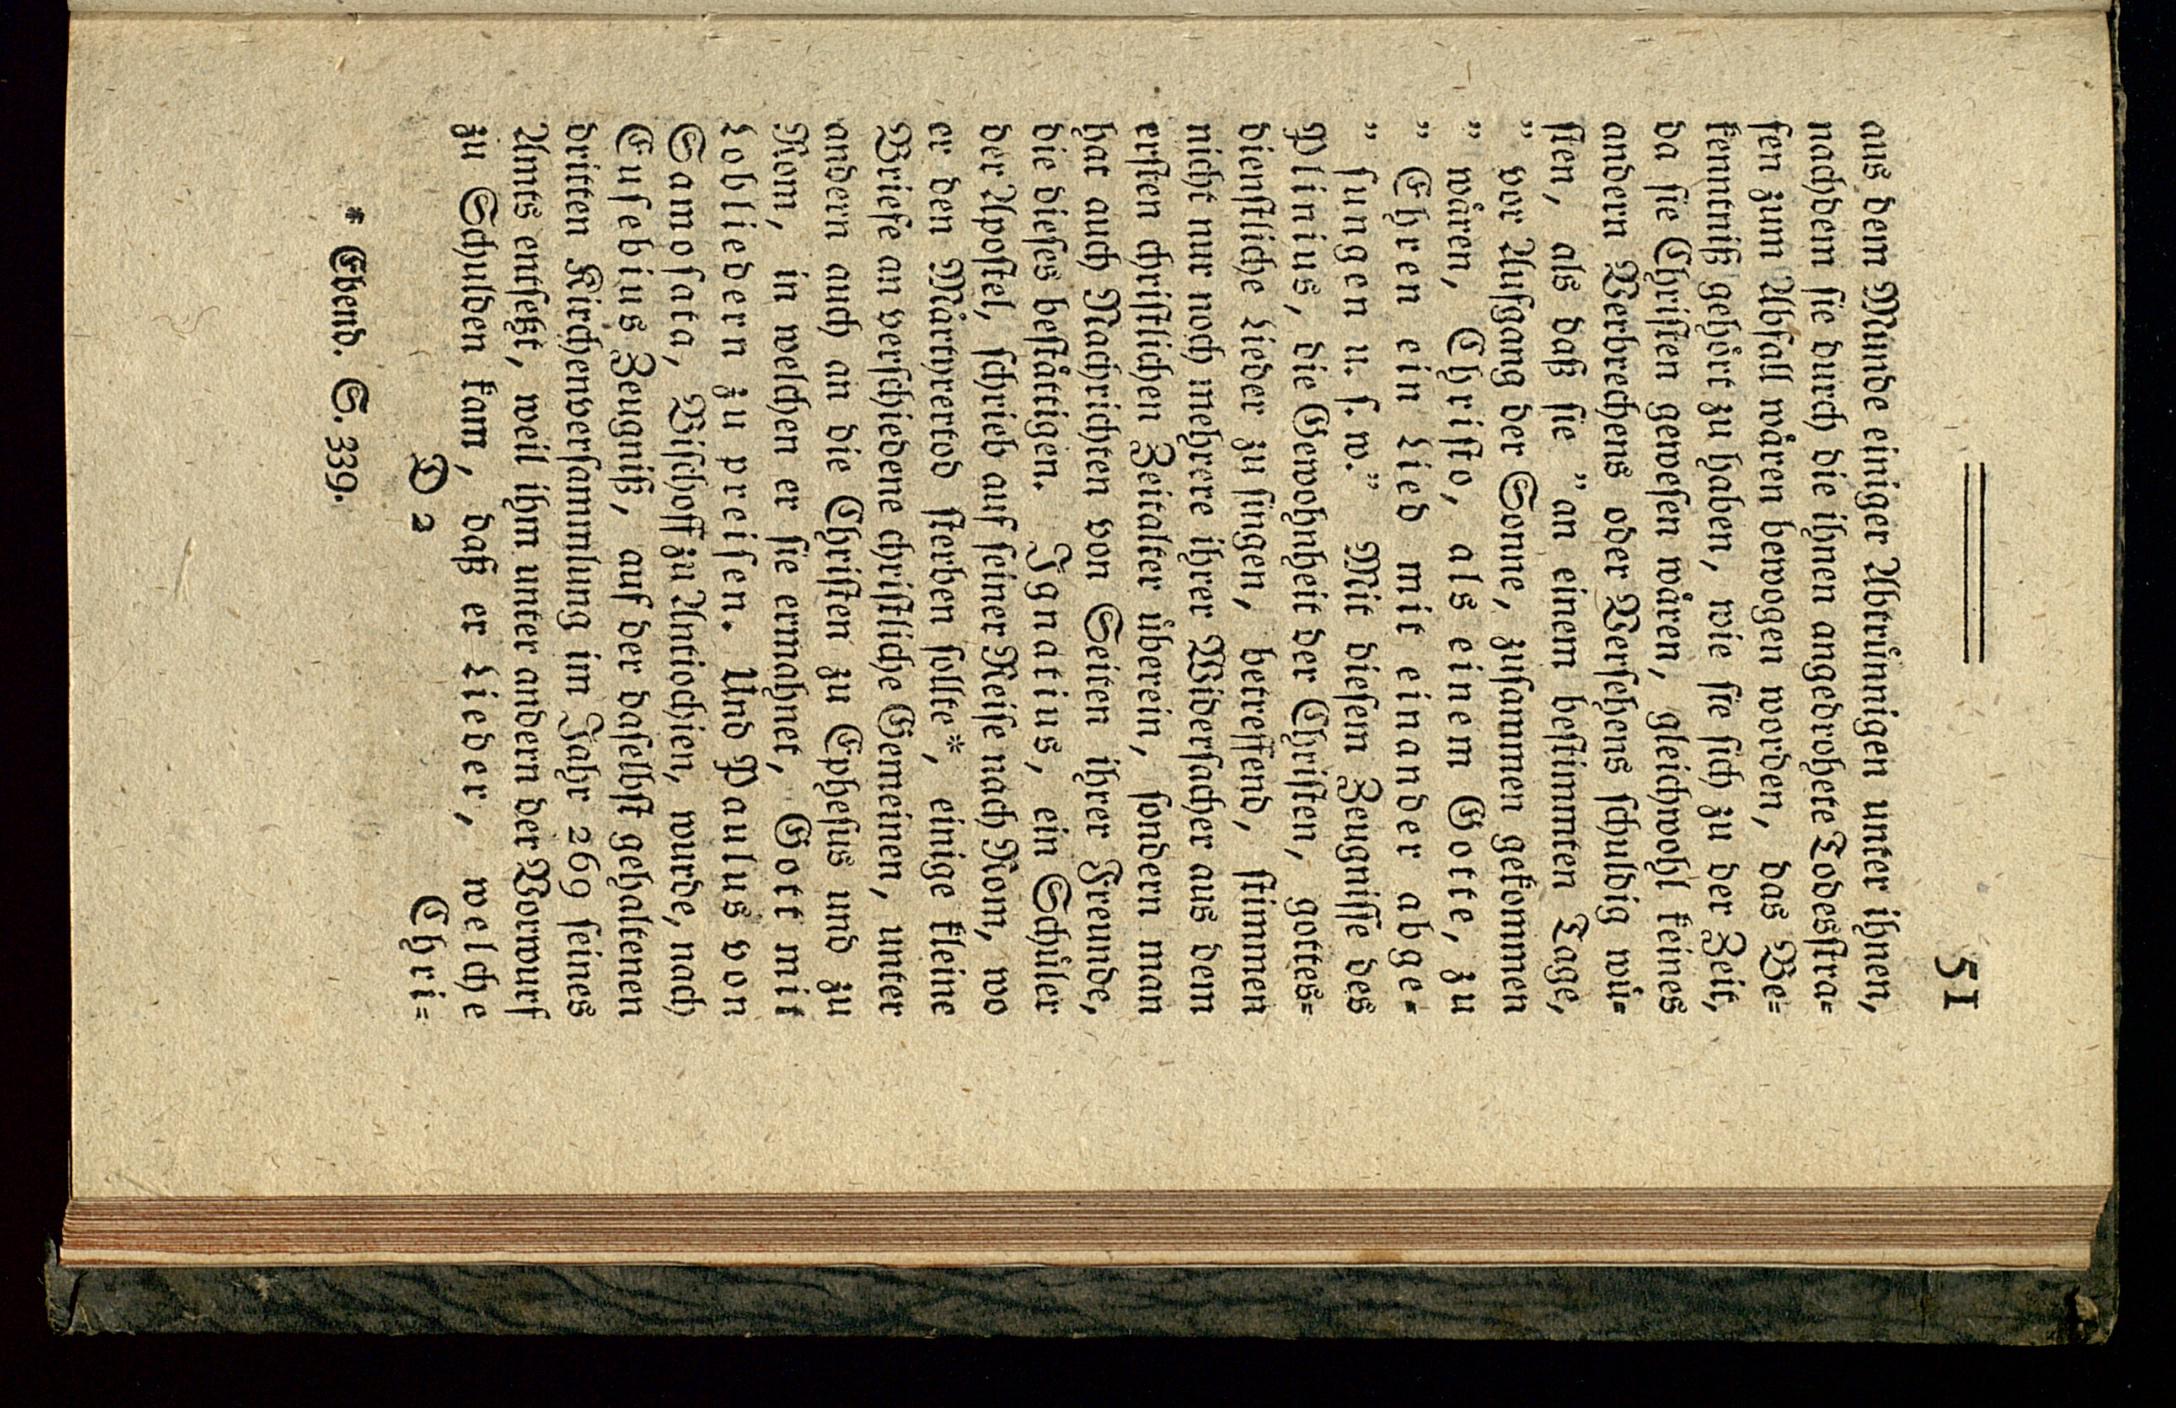 51
aus dem Munde einiger Abtrünnigen unter ihnen,
nachdem ſie durch die ihnen angedrohete Todesſtra-
fen zum Abfall wären bewogen worden, das Be-
kenntniß gehört zu haben, wie ſie ſich zu der Zeit,
da ſie Chriſten geweſen wären, gleichwohl keines
andern Verbrechens oder Verſehens ſchuldig wü-
ſten, als daß ſie ”an einem beſtimmten Tage,
” vor Aufgang der Sonne, zuſammen gekommen
” wären, Chriſto, als einem Gotte, zu
” Ehren ein Lied mit einander abge-
” ſungen u. ſ. w.” Mit dieſem Zeugniſſe des
Plinius, die Gewohnheit der Chriſten, gottes-
dienſtliche Lieder zu ſingen, betreffend, ſtimmen
nicht nur noch mehrere ihrer Widerſacher aus dem
erſten chriſtlichen Zeitalter überein, ſondern man
hat auch Nachrichten von Seiten ihrer Freunde,
die dieſes beſtättigen. Ignatius, ein Schüler
der Apoſtel, ſchrieb auf ſeiner Reiſe nach Rom, wo
er den Märtyrertod ſterben ſollte*, einige kleine
Briefe an verſchiedene chriſtliche Gemeinen, unter
andern auch an die Chriſten zu Epheſus und zu
Rom, in welchen er ſie ermahnet, Gott mit
Lobliedern zu preiſen. Und Paulus von
Samoſata, Biſchoff zu Antiochien, wurde, nach
Euſebius Zeugniß, auf der daſelbſt gehaltenen
dritten Kirchenverſammlung im Jahr 269 ſeines
Amts entſetzt, weil ihm unter andern der Vorwurf
zu Schulden kam, daß er Lieder, welche
D 2 Chri-
* Ebend. S. 339.